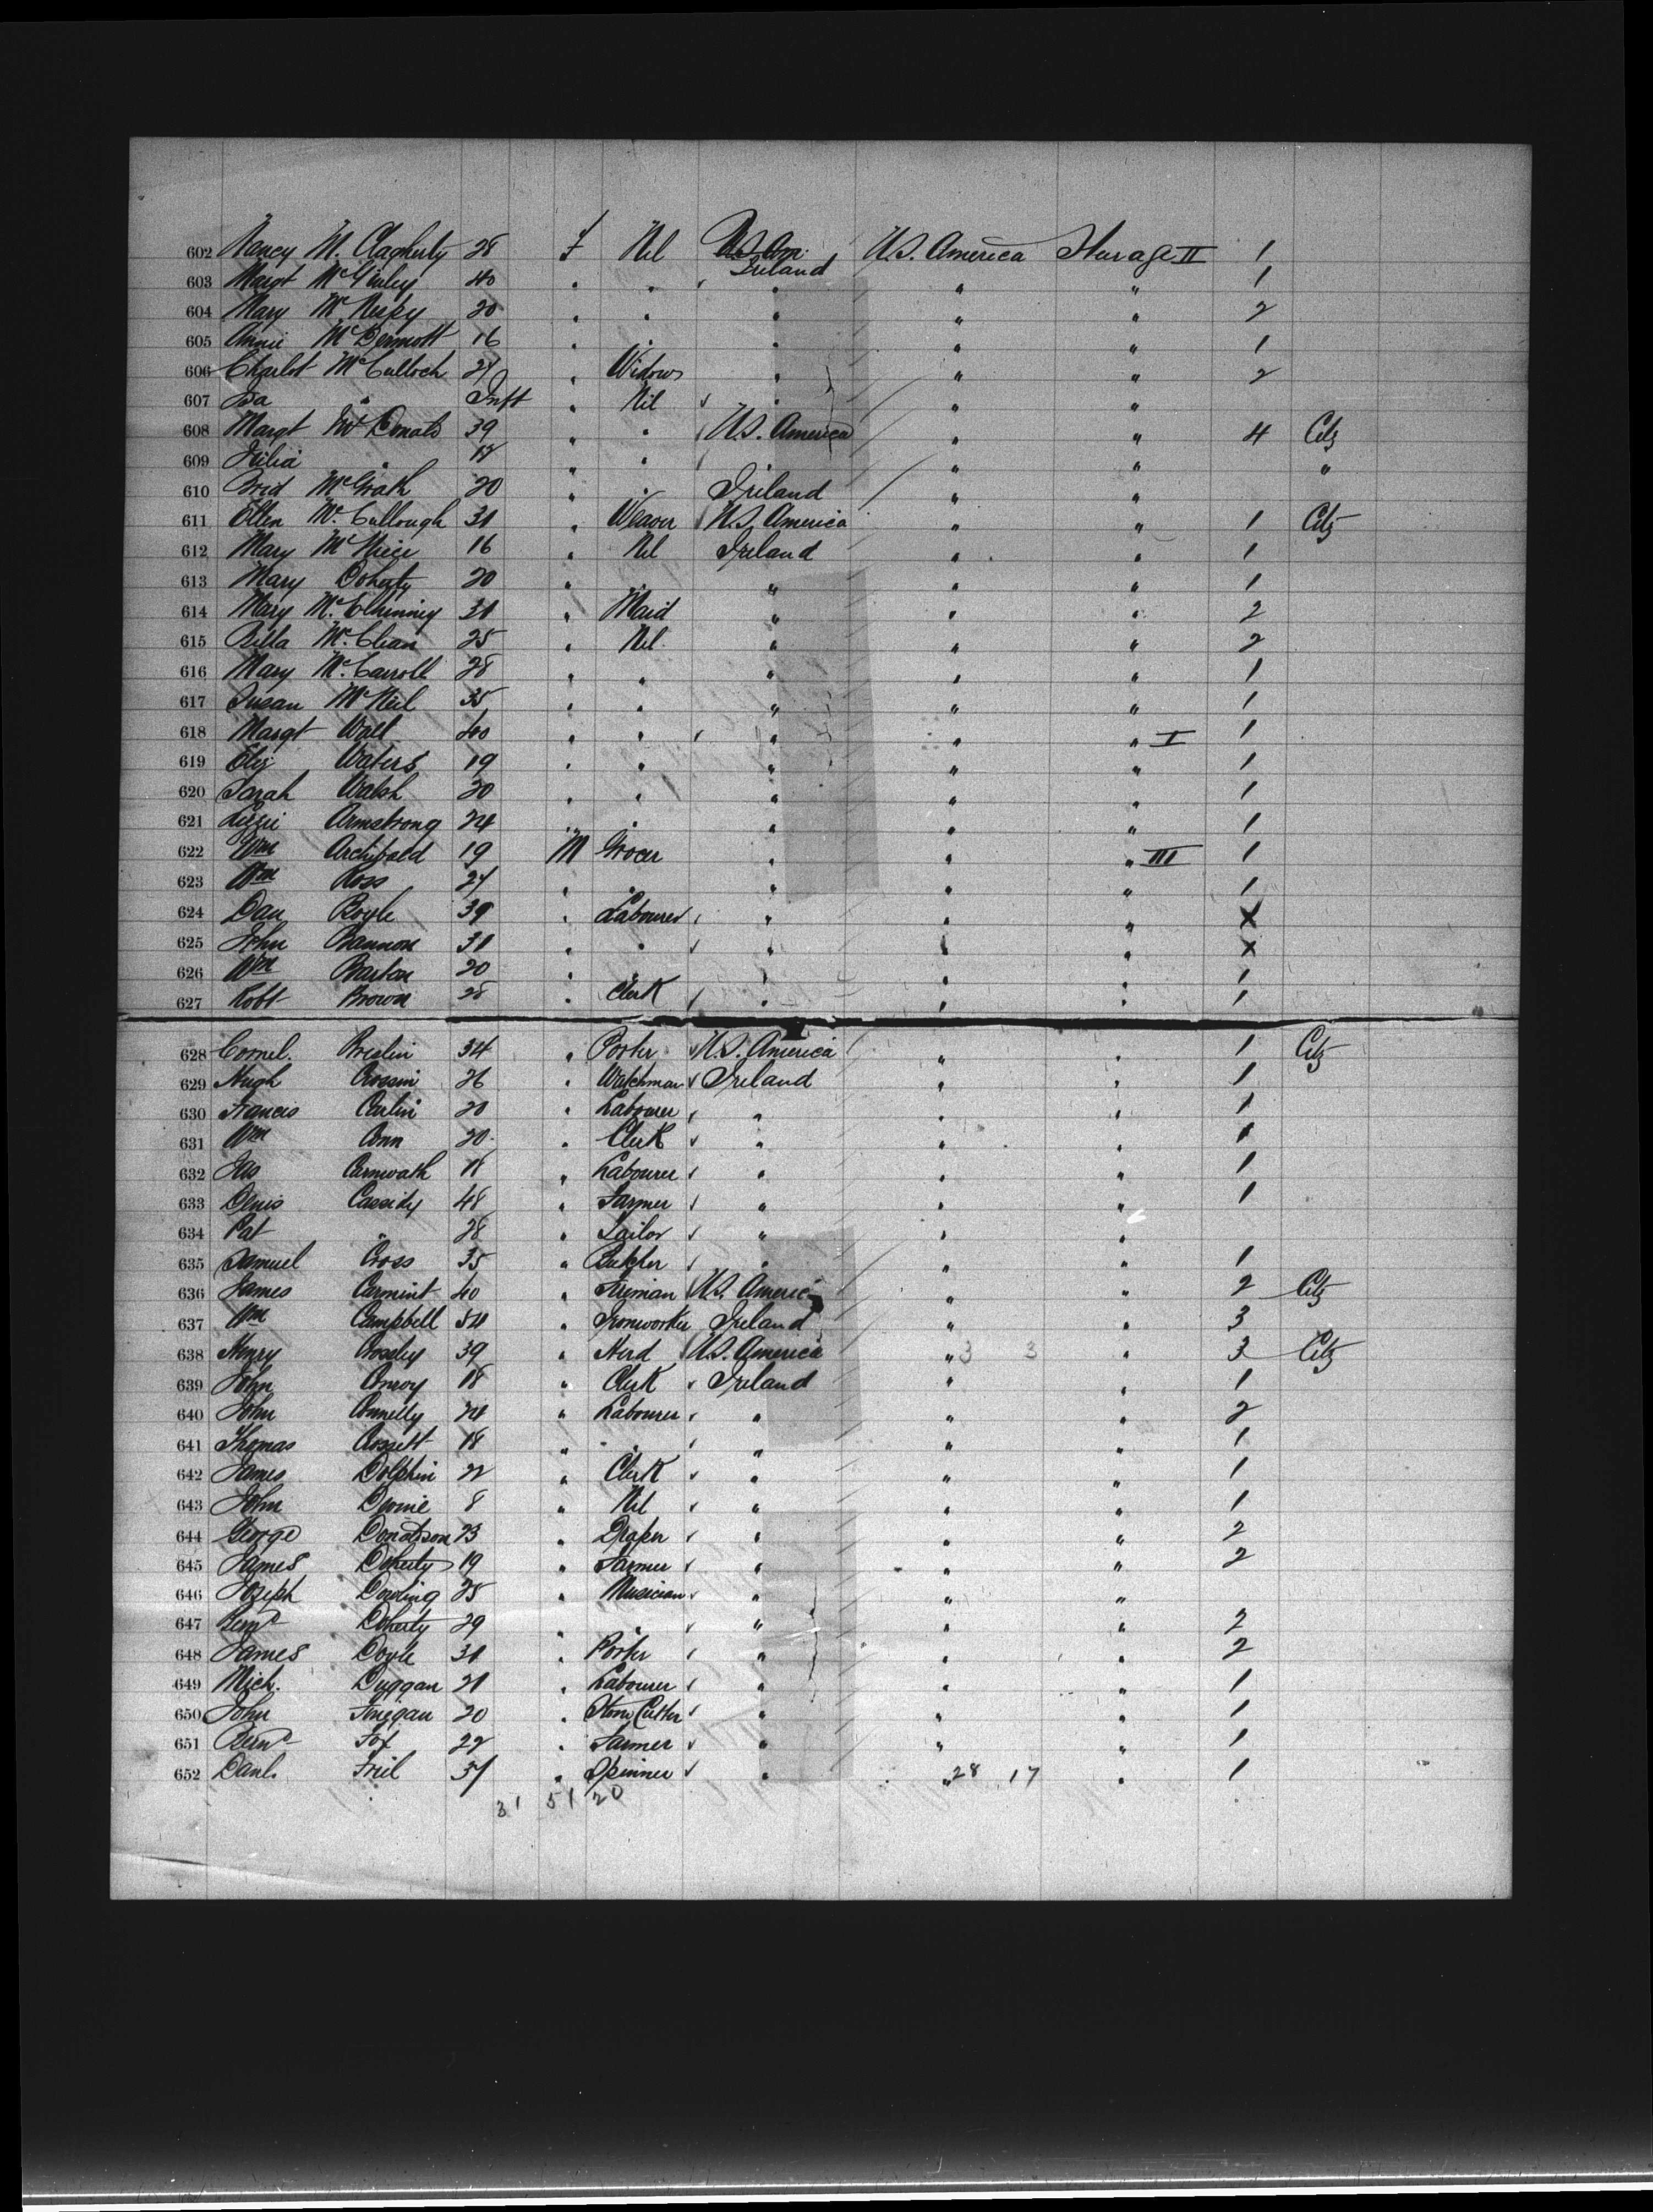 602 Nancy M. Clagherty 28 F Nil U.S. Am. Ireland U.S. America Steerage II 1
603 Margt McGinley 40 " " " " " 1
604 Mary 20 " " " " " 2
605 Annie McDermott 16 " " " " " 1
606 Charlot McCulloch 24 " Widow " " " 2
607 Isa " Inft " Nil " " "
608 Margt McDonald 39 " " U.S. America " " 4 Citz
609 " 17 " " " " " "
610 Brid McGrath 20 " " Ireland " "
611 Ellen McCullough 31 " Weaver U.S. America " " 1 Citz
612 Mary McNiece 16 " Nil Ireland " " 1
613 Mary Doherty 20 " " " " " 1
614 Mary McElhinney 31 " Maid " " " 2
615 Rilla McClean 25 " Nil " " " 2
616 Mary McCarroll 28 " " " " " 1
617 Susan McNeil 35 " " " " " 1
618 Margt Wall 40 " " " " " I 1
619 Eliz Waters 19 " " " " " 1
620 Sarah Walsh 20 " " " " " 1
621 Lizzie Armstrong 24 " " " " " 1
622 Wm Archibald 19 M Grocer " " " III 1
623 Wm Ross 24 " " " " " 1
624 Dan Boyle 39 " Labourer " " " X
625 John Bannon 31 " " " " " X
626 Wm Barton 20 " " " " " 1
627 Robt Brown 28 " Clerk " " " 1
628 Cornel. Breslin 34 " Porter U.S. America " " 1 Citz
629 Hugh Crossin 26 " Watchman Ireland " " 1
630 Francis Carlin 20 " Labourer " " " 1
631 Wm Conn 20 " Clerk " " " 1
632 Jas Carnwath 18 " Labourer " " " 1
633 Denis Cassidy 48 " Farmer " " " 1
634 Pat " 28 " Sailor " " "
635 Samuel Cross 35 " Butcher " " " 1
636 James Carmint 40 " Fireman U.S. America " " 2 Citz
637 Wm Campbell 54 " Ironworker Ireland " " 3
638 Henry Crossley 39 " Herd U.S. America " 3 3 " 3 Citz
639 John Conroy 18 " Clerk Ireland " " 1
640 John Connelly 24 " Labourer " " " 2
641 Thomas Crossett 18 " " " " " 1
642 James Dolphin 22 " Clerk " " " 1
643 John 8 " Nil " " " 1
644 George Donaldson 23 " Draper " " " 2
645 James Doherty 19 " Farmer " " " 2
646 Joseph Dowling 25 " Musician " " "
647 Doherty 29 " " " " " 2
648 James Doyle 31 " Porter " " " 2
649 Mich. Duggan 21 " Labourer " " " 1
650 John 20 " Stone Cutter " " " 1
651 Bernd Fox 22 " Farmer " " " 1
652 Danl. Friel 31 " Spinner " " 28 17 " 1
31 51 20